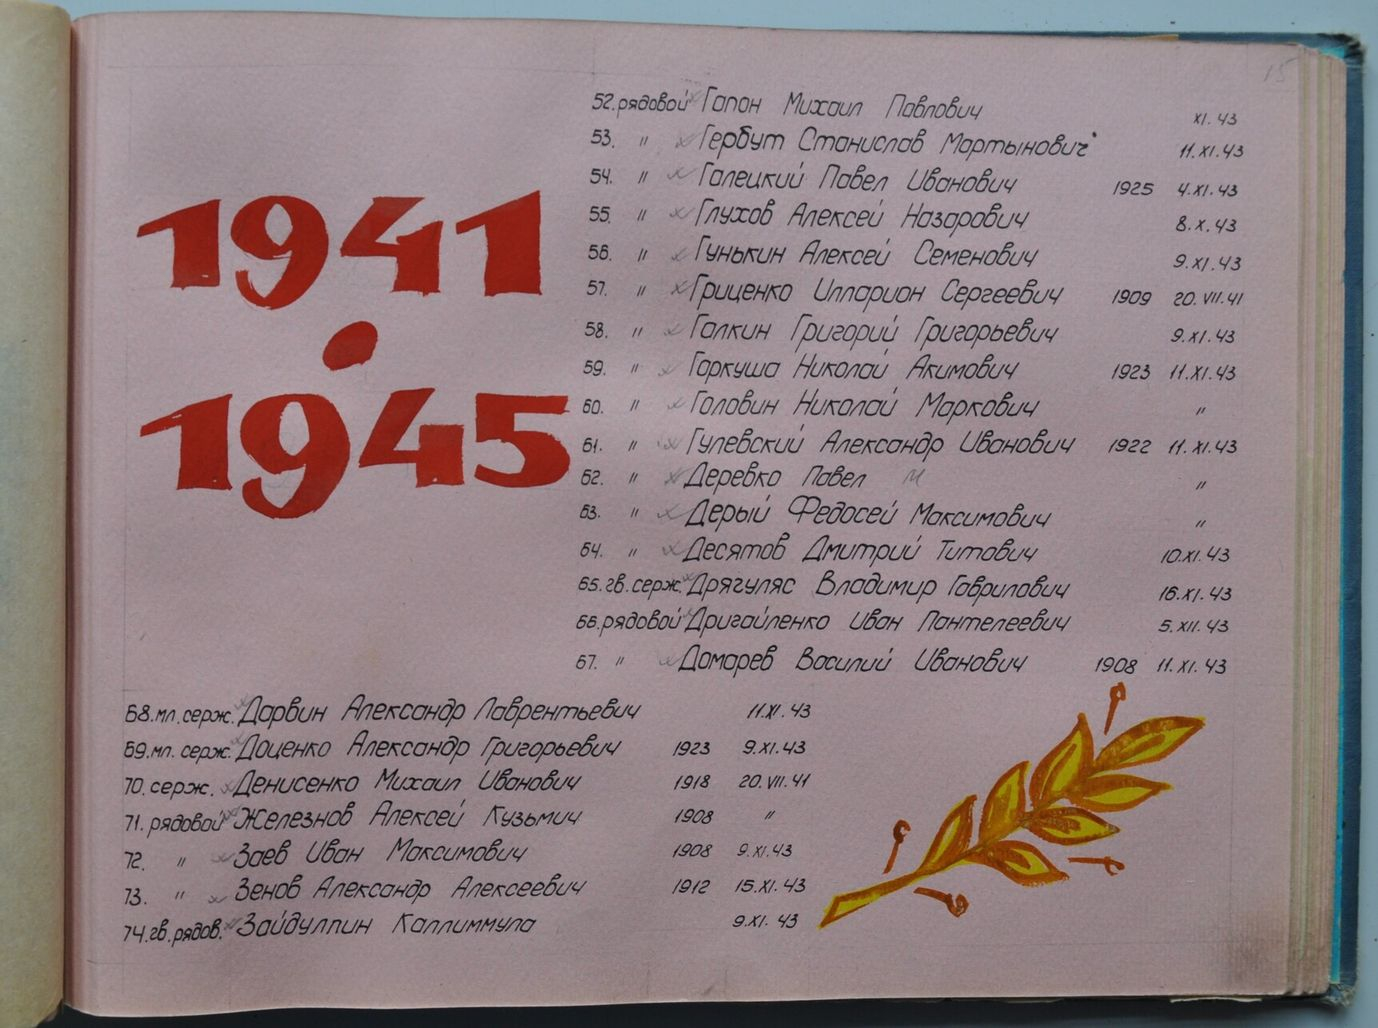 15
1941
•
1945
52. рядовой Гапон Михаил Павлович XI.43
53. " Гербут Станислав Мартынович 11.XI.43
54. " Галецкий Павел Иванович 1925 4.XI.43
55. " Глухов Алексей Назарович 8.X.43
56. " Гунькин Алексей Семенович 9.XI.43
57. " Гриценко Илларион Сергеевич 1909 20.VII.41
58. " Галкин Григорий Григорьевич 9.XI.43
59. " Гаркуша Николай Акимович 1923 11.XI.43
60. " Головин Николай Маркович "
61. " Гулевский Александр Иванович 1922 11.XI.43
62. " Деревко Павел М "
63. " Дерый Федосей Максимович "
64. " Десятов Дмитрий Титович 10.XI.43
65. гв. серж. Дрягуляс Владимир Гаврилович 16.XI.43
66. рядовой Дригайленко Иван Пантелеевич 5.XII.43
67. " Домарев Василий Иванович 1908 11.XI.43
68. мл. серж. Дарвин Александр Лаврентьевич 11.XI.43
69. мл. серж. Доценко Александр Григорьевич 1923 9.XI.43
70. серж. Денисенко Михаил Иванович 1918 20.VII.41
71. рядовой Железнов Алексей Кузьмич 1908 "
72. " Заев Иван Максимович 1908 9.XI.43
73. " Зенов Александр Алексеевич 1912 15.XI.43
74. гв. рядов. Зайдулпин Каллиммула 9.XI.43